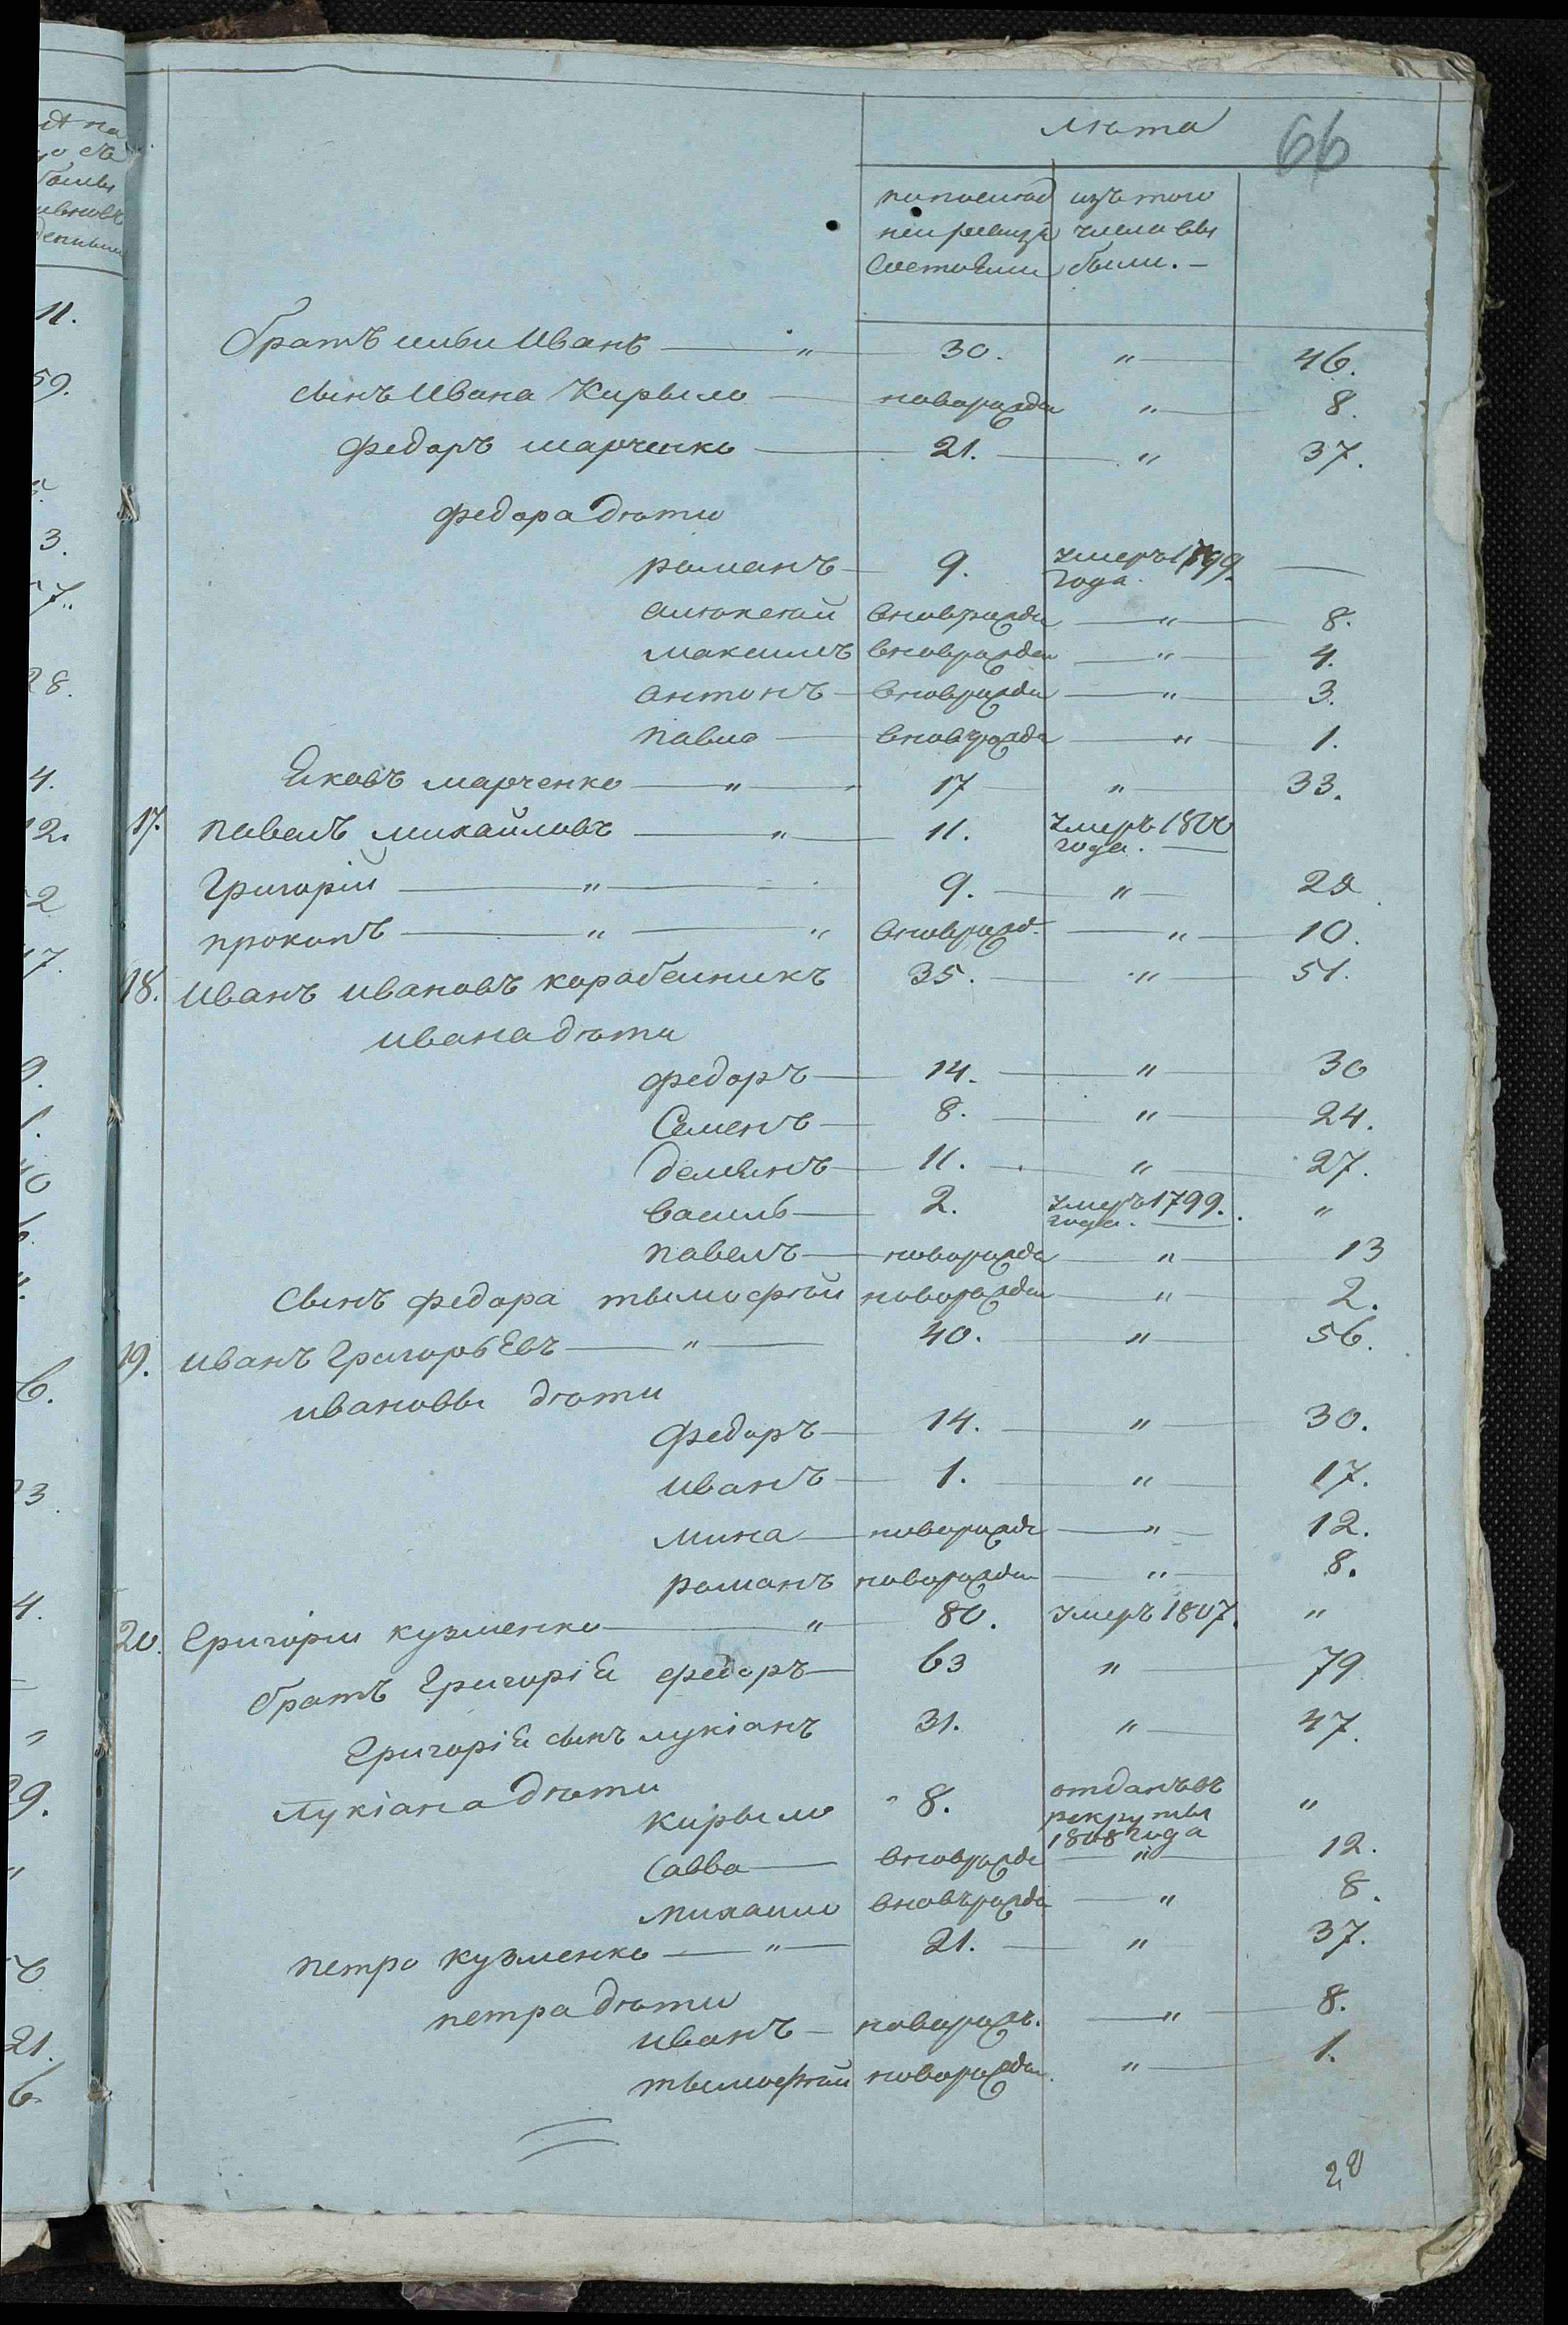 лѣта 66
по послѣд изъ того
ней ревизіи числа вы
состояли были.
братъ Иванъ — " — 30. " 46.
сынъ Ивана Кирыло — новорожде " 8.
федоръ марченко — 21. " 37.
федора дѣти
романъ — 9. умеръ 1799
года. —
алѣксѣй вновьрожде " 8.
максимъ вновьрожден " 4.
антонъ вновьрожде " 3.
павло — вновьрожде " 1.
Яковъ марченко — " — 17 " 33.
17. павелъ михайловъ — " — 11. умеръ 1800
года. —
Григорій — " — 9. " 25
прокопъ — " — " вноврожд. " 10.
18. иванъ ивановъ карабелникъ 35. " 51.
ивана дѣти
федоръ — 14. " 30
Семенъ — 8. " 24.
демянъ — 11. " 27.
василь — 2. умеръ 1799. "
года.
павелъ — новорожде " 13
сынъ федора тымофѣй новорожден " 2.
19. иванъ Григорьевъ — " — 40. " 56.
ивановы дѣти
федоръ — 14. " 30.
иванъ — 1. " 17.
мина — новорожде " 12.
романъ новорожден " 8.
20. Григорій кузменко — " 80. умеръ 1807. "
братъ Григорія федоръ — 63 " 79
Григорія сынъ лукіанъ 31. " 47.
Лукіана дѣти
кирыло " 8. отданъ въ "
рекруты
1808 года
Савва — вновьрожде " 12.
михаило вновьрожде " 8.
петро кузменко — " — 21. " 37.
петра дѣти
иванъ — новорожд. " 8.
тымофѣй новорожден. " 1.
28
11.
59.
3.
7.
28.
4.
12.
2
17.
9.
1.
40
23
4.
29.
21.
6.